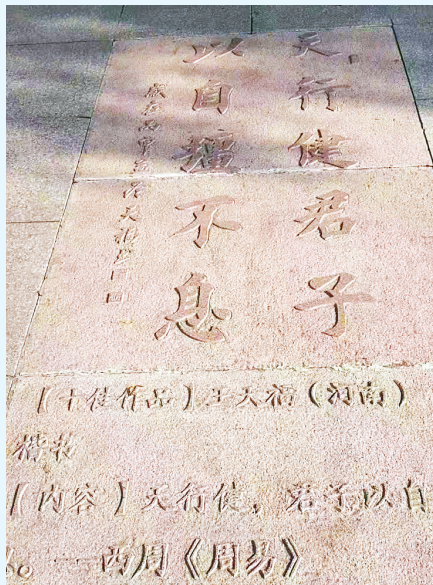 天行健君子
以自疆不息
【十佳作品】王天福（河南）
楷书
【内容】天行健，君子以自
。——西周《周易》